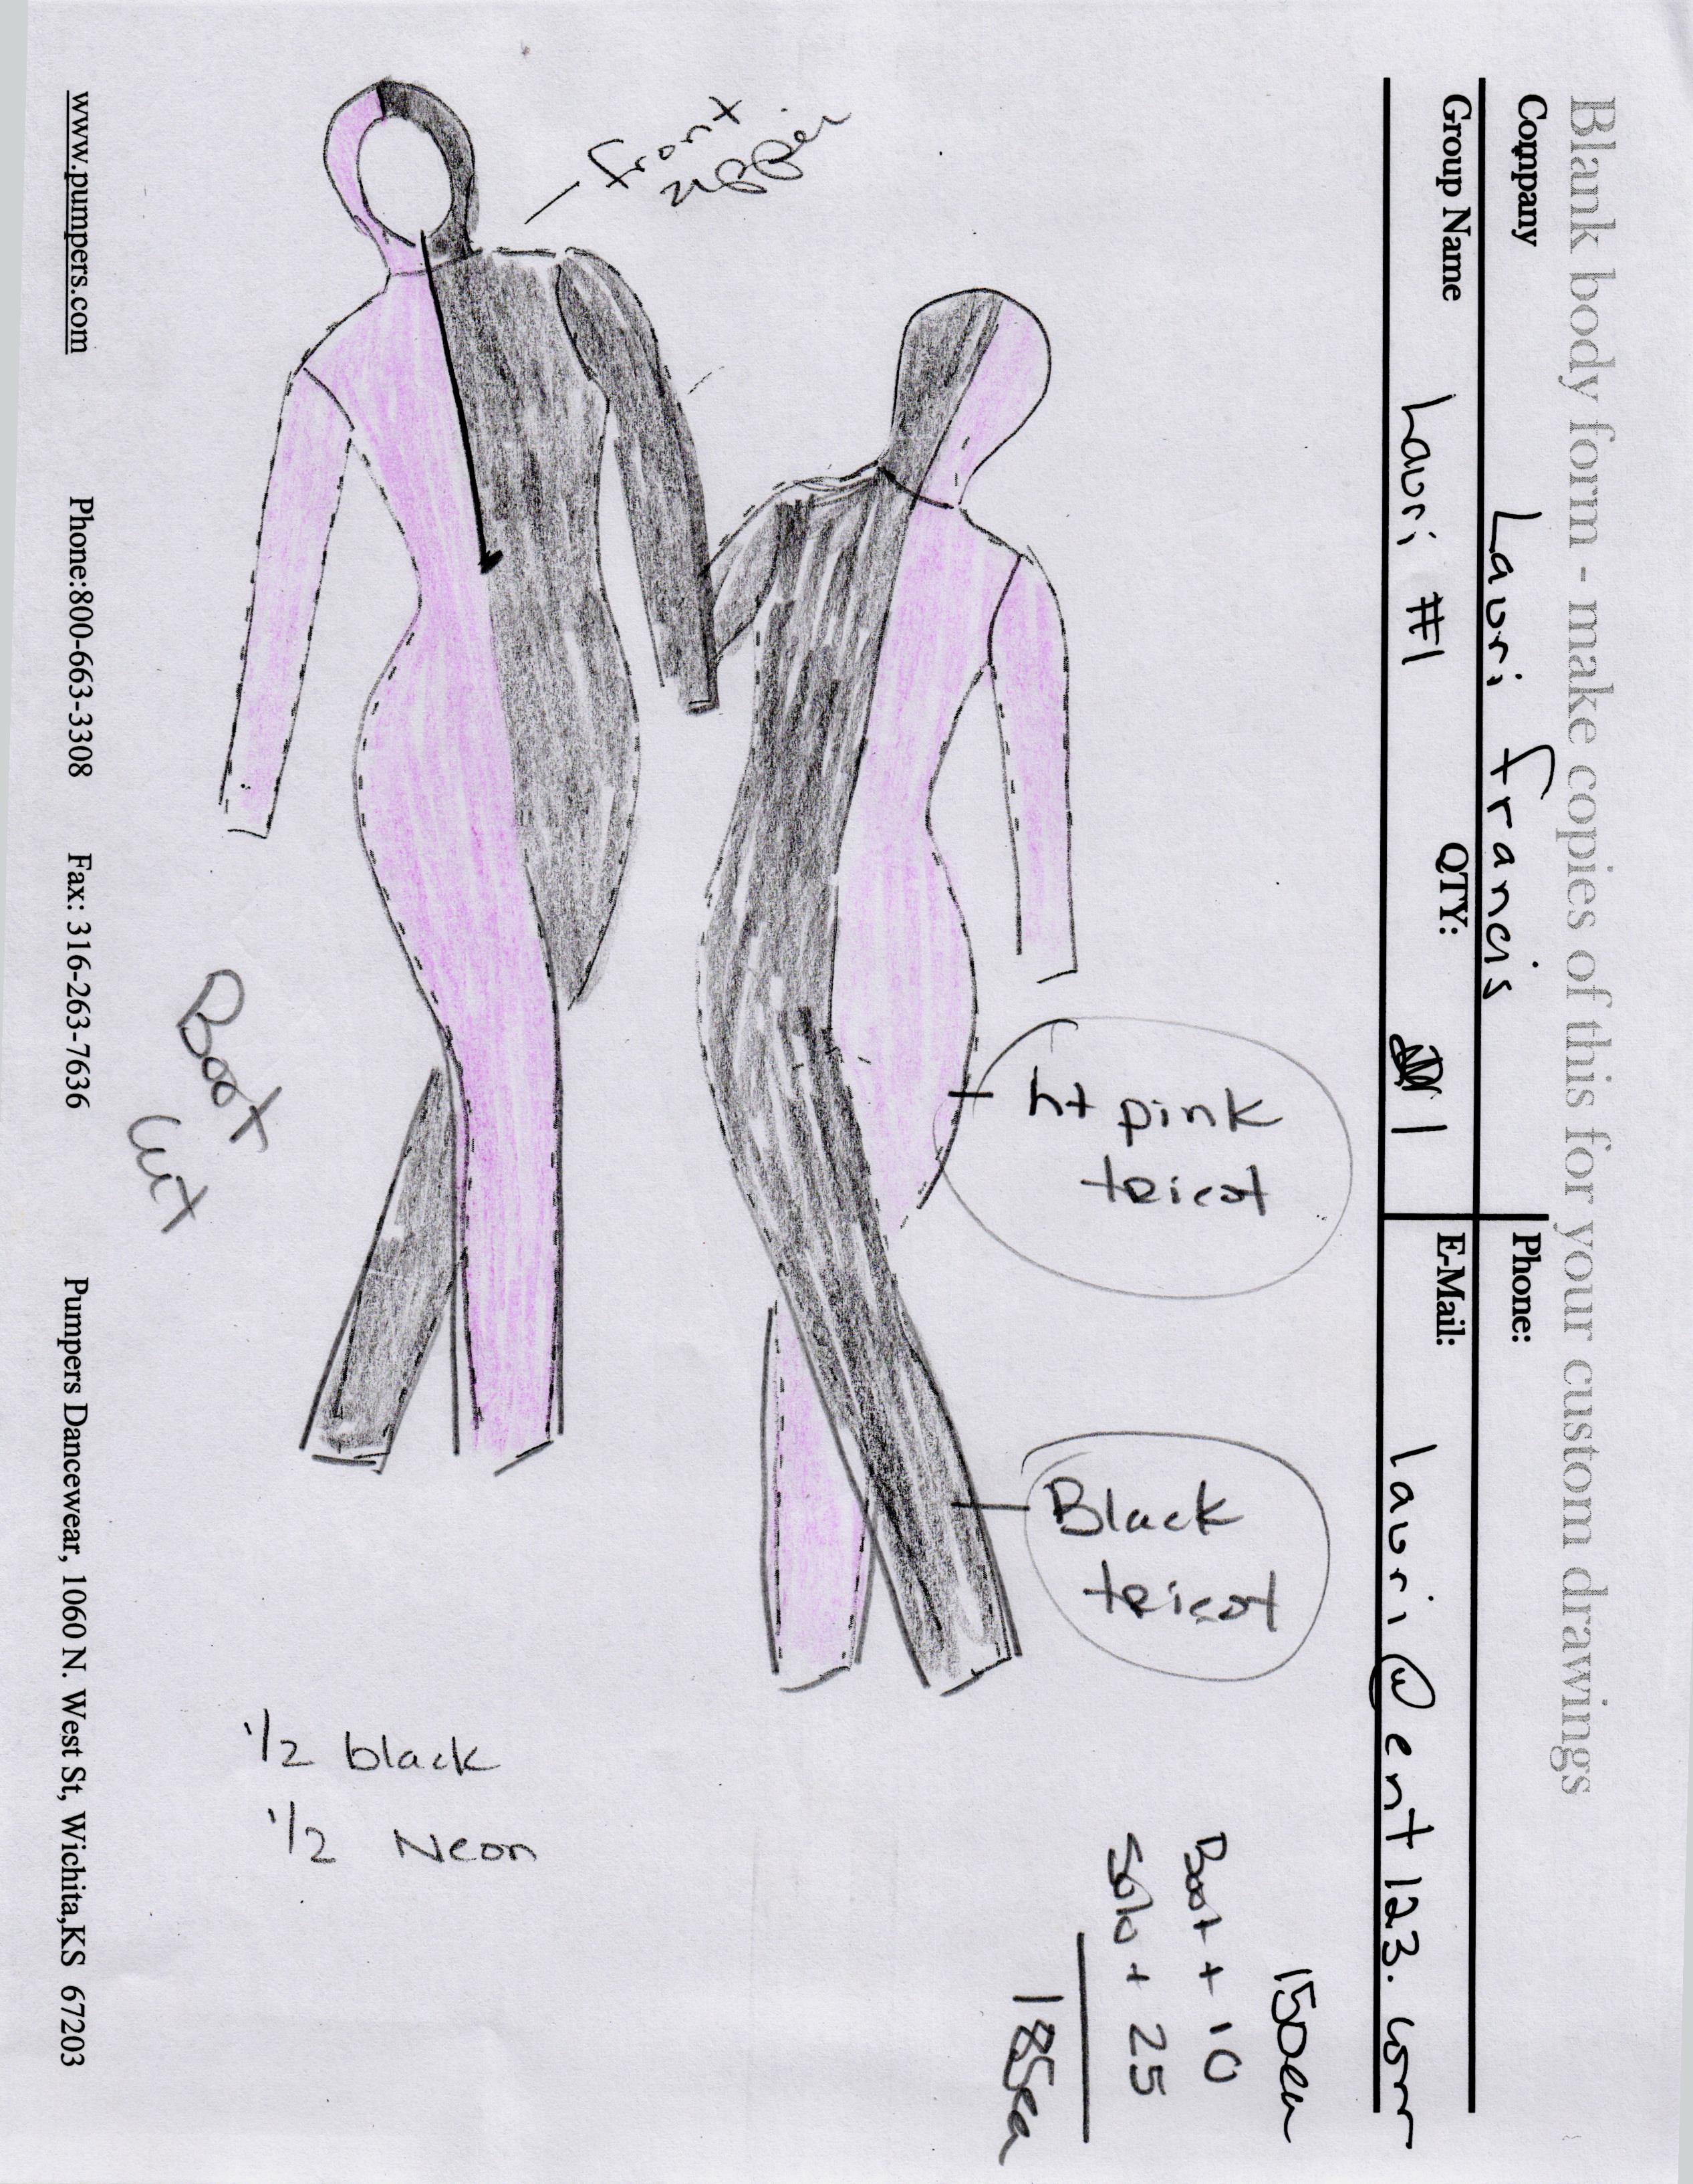 Blank body form - make copies of this for your custom drawings
Company Lauri Francis
Phone:
Group Name Lauri #1 QTY: 1
E-Mail: lauri@ent123.com
front
zipper
ht pink
tricot
Black
tricot
150ea
Boot + 10
Solo + 25
185ea
Boot
Cut
1/2 black
1/2 Neon
www.pumpers.com Phone:800-663-3308 Fax: 316-263-7636 Pumpers Dancewear, 1060 N. West St, Wichita,KS 67203